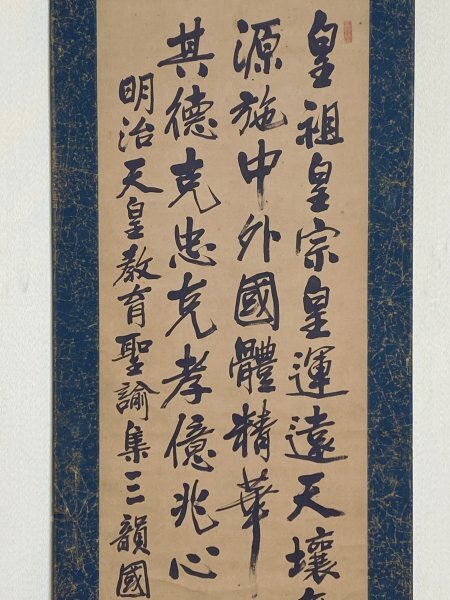 皇祖皇宗皇運遠天壤
源施中外國體精華
其德克忠克孝億兆心
明治天皇教育聖諭集三韻國